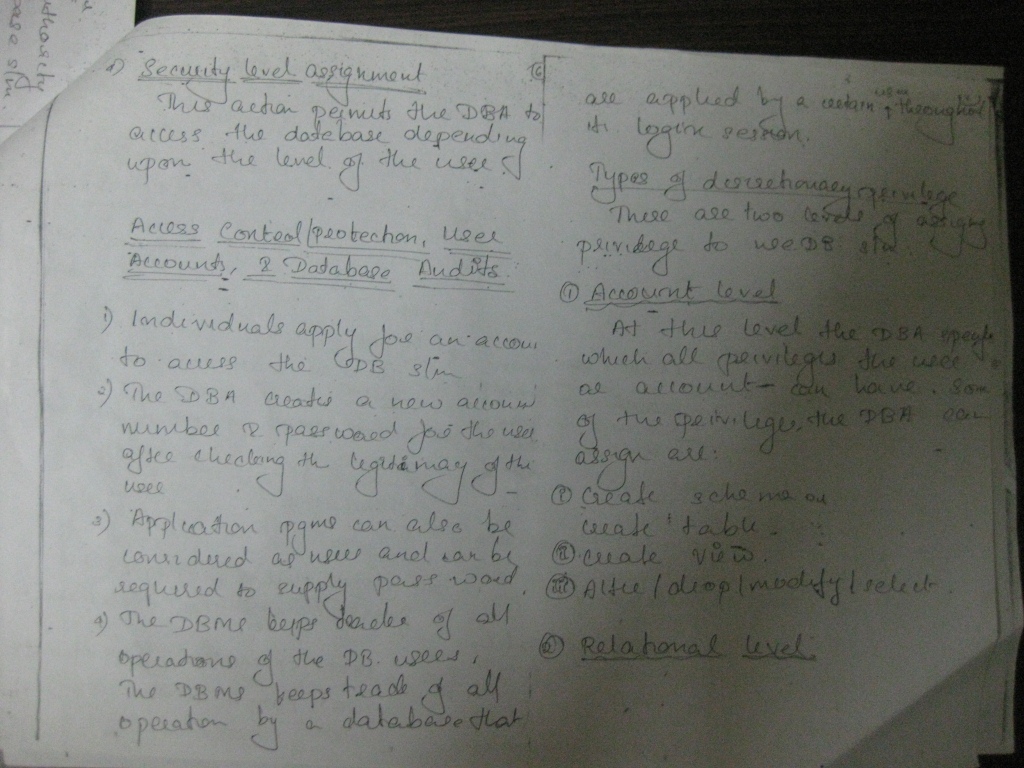 d) Security level assignment
This action permits the DBA to
access the database depending
upon the level of the user.
Access Control/protection, User
Accounts, & Database Audits.
1) Individuals apply for an accou
to access the DB s/m
2) The DBA creates a new accoun
number & password for the user
after checking the legitimacy of the
user
3) Application pgms can also be
considered as user and can be
required to supply password.
4) The DBMS keeps tracks of all
operations of the DB. users.
The DBMS keeps track of all
operation by a database that
16
are applied by a certain user throughout
its login session.
Types of discretionary privilege
There are two levels of assigng
privilege to use DB s/m
① Account level
At this level the DBA specify
which all privileges the user
or account can have. Som
of the privileges, the DBA can
assign are:
(i) Create schema or
create table.
(ii) create view.
(iii) Alter/drop/modify/select.
② Relational level.
uthority
base s/m